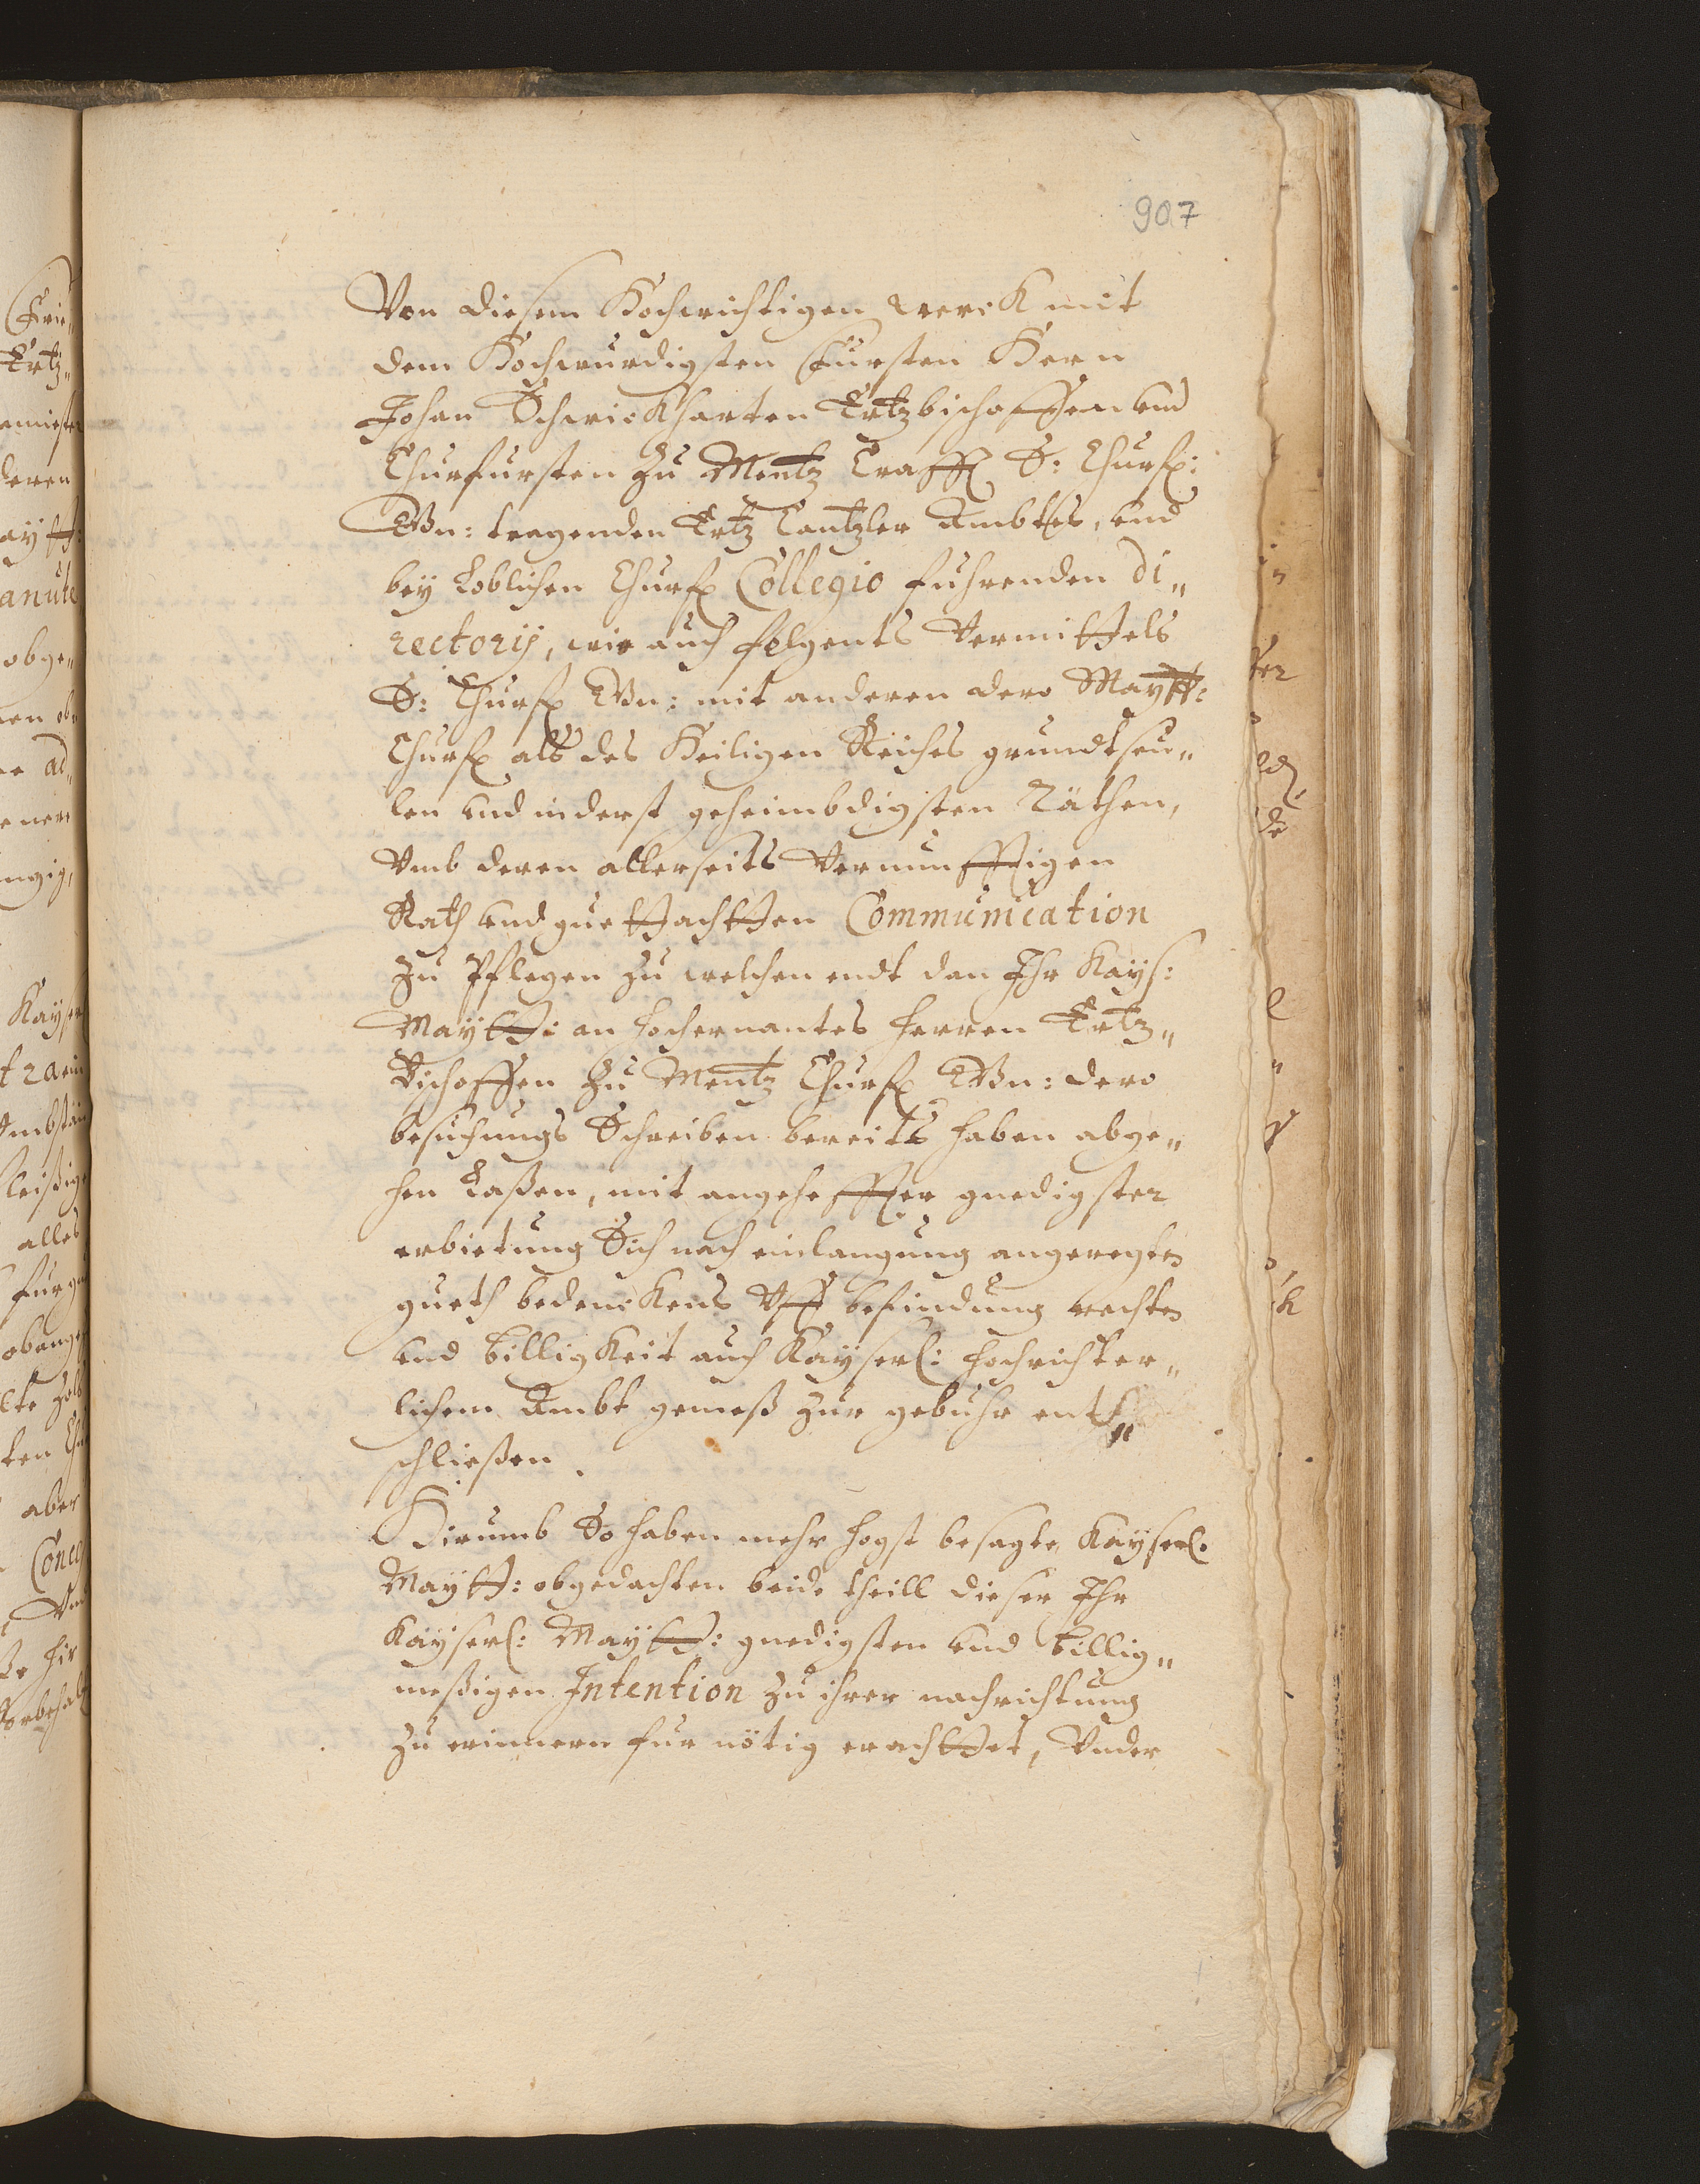 907
Von diesem Hochwichtigen werck mit
dem Hochwurdigsten Fürsten Hern
Johan Schwickharten Ertzbischoffen und
Churfursten zu Mentz Crafft S: Churf:
Gn: tragenden Ertz Cantzler Ambtes, und
bey Loblichen Churf Collegio fuhrenden di„
rectorij, wie auch folgents vermittels
S: Churf Gn: mit anderen dero Maytt:
Churf als des Heiligen Reiches grundtseu„
len und inderst geheimbdigsten Räthen,
Umb deren allerseits Vernunfftigen
Rath und guettachtten Communication
zu Pflegen zu welchen endt dan Ihr Kays:
Maytt: an hochernantes herren Ertz„
Bischoffen zu Mentz Churf Gn: dero
besuchungs Schreiben bereits haben abge„
hen Laßen, mit angeheffter gnedigster
erbietung Sich nach einlangung angeregtes
gueth bedenckens Uff befindung rechtes
und billigkeit auch Kayserl: hochrichter„
lichem Ambt gemeß zur gebuhr ent„
schließen.
Hirumb So haben mehr hogst besagte Kayserl:
Maytt: obgedachten beide theill dieser Ihr
Kayserl: Maytt: gnedigsten und billig„
meßigen Intention zu ihrer nachrichtung
zu erinnern fur nötig erachttet, Under